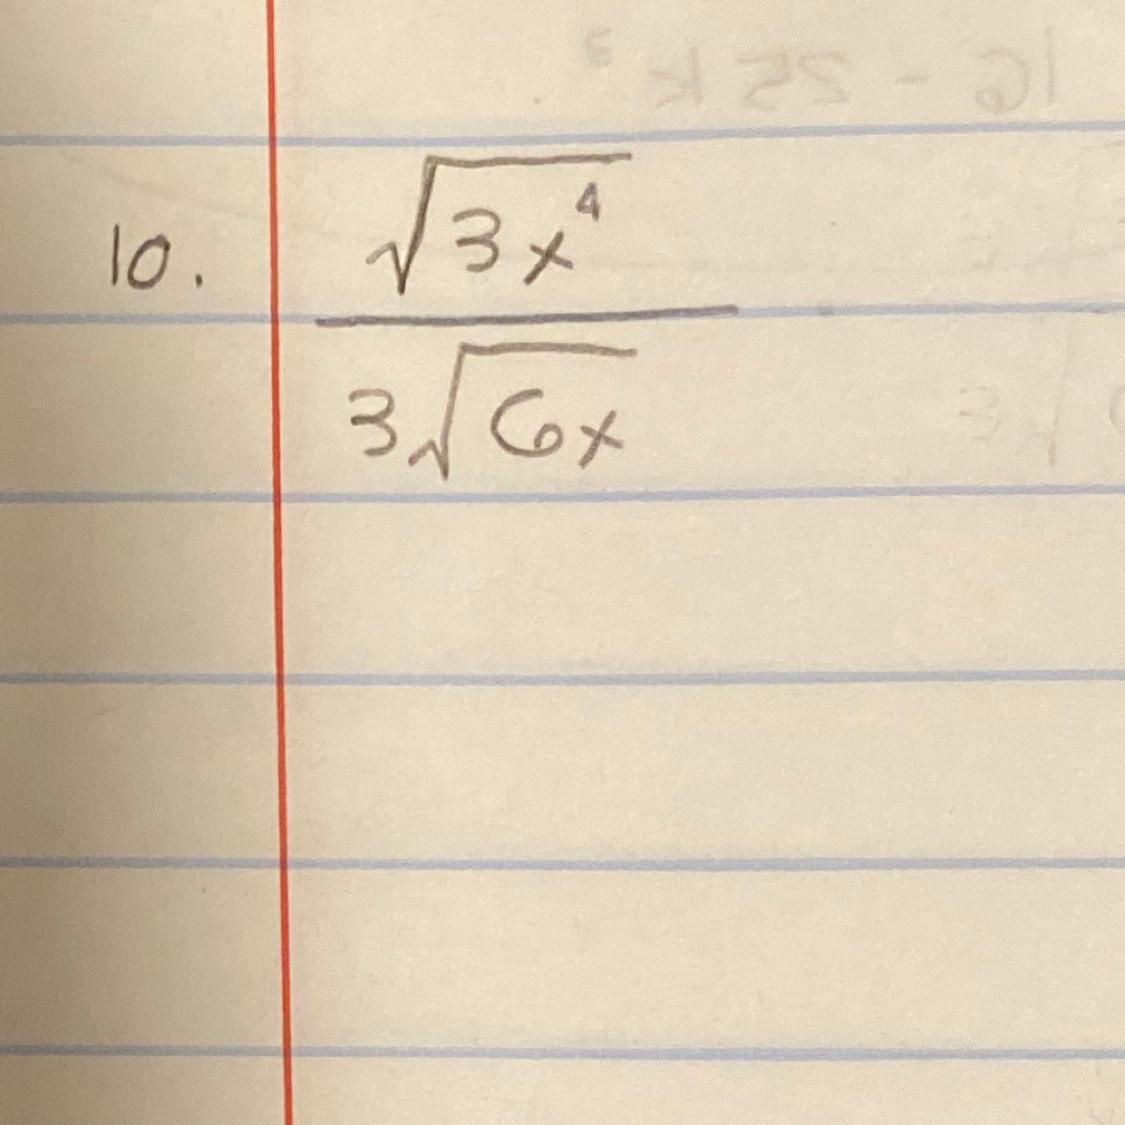 10. √(3x⁴)
3√(6x)